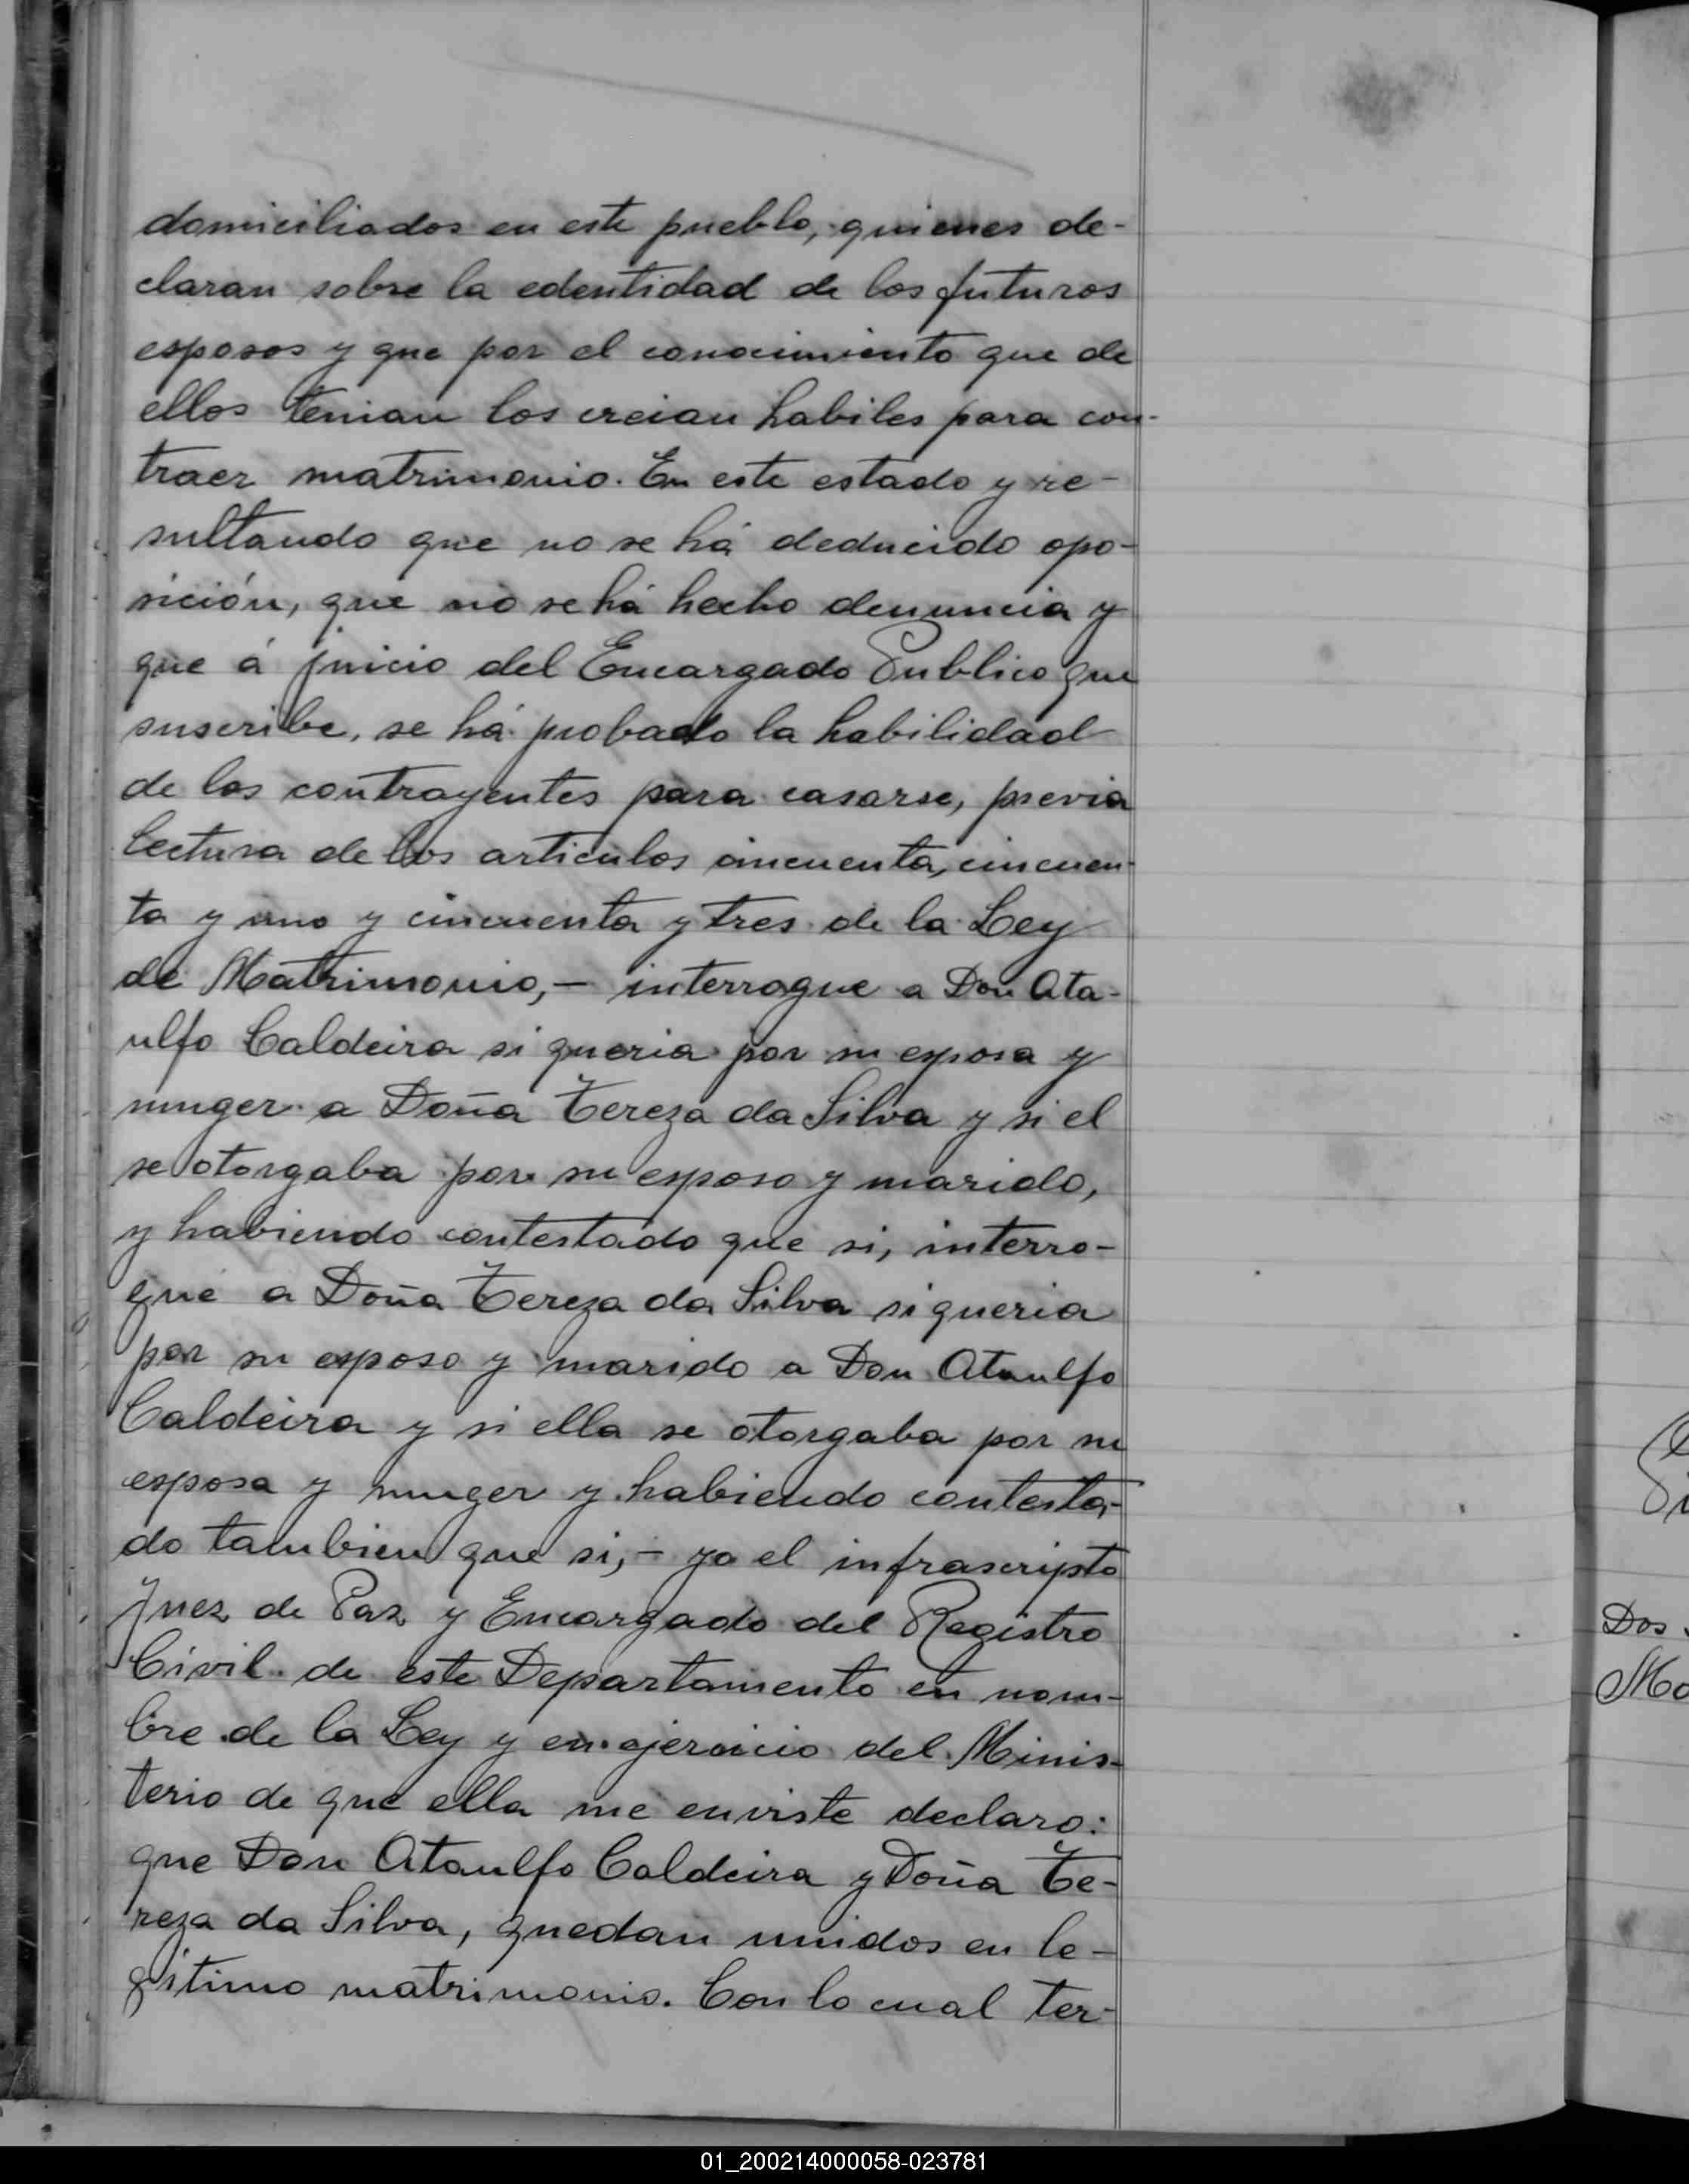 domiciliados en este pueblo, quienes de-
claran sobre la edentidad de los futuros
esposos y que por el conocimiento que de
ellos tenian los creian habiles para con-
traer matrimonio. En este estado y re-
sultando que no se há deducido opo-
sición, que no se há hecho denuncia y
que á juicio del Encargado Publico que
suscribe, se há probado la habilidad
de los contrayentes para casarse, previa
lectura de los articulos cincuenta, cincuen-
ta y uno y cincuenta y tres de la Ley
de Matrimonio,- interrogue a Don Ata-
ulfo Caldeira si queria por su esposa y
muger a Doña Tereza da Silva y si el
se otorgaba por su esposo y marido,
y habiendo contestado que si, interro-
gué a Doña Tereza da Silva si queria
por su esposo y marido a Don Ataulfo
Caldeira y si ella se otorgaba por su
esposa y muger y habiendo contesta-
do tambien que si,- yo el infrascripto
Juez de Paz y Encargado del Registro
Civil de este Departamento en nom-
bre de la Ley y en ejercicio del Minis-
terio de que ella me enviste declaro:
que Don Ataulfo Caldeira y Doña Te-
reza da Silva, quedan unidos en le-
gitimo matrimonio. Con lo cual ter-
Dos
01_200214000058-023781